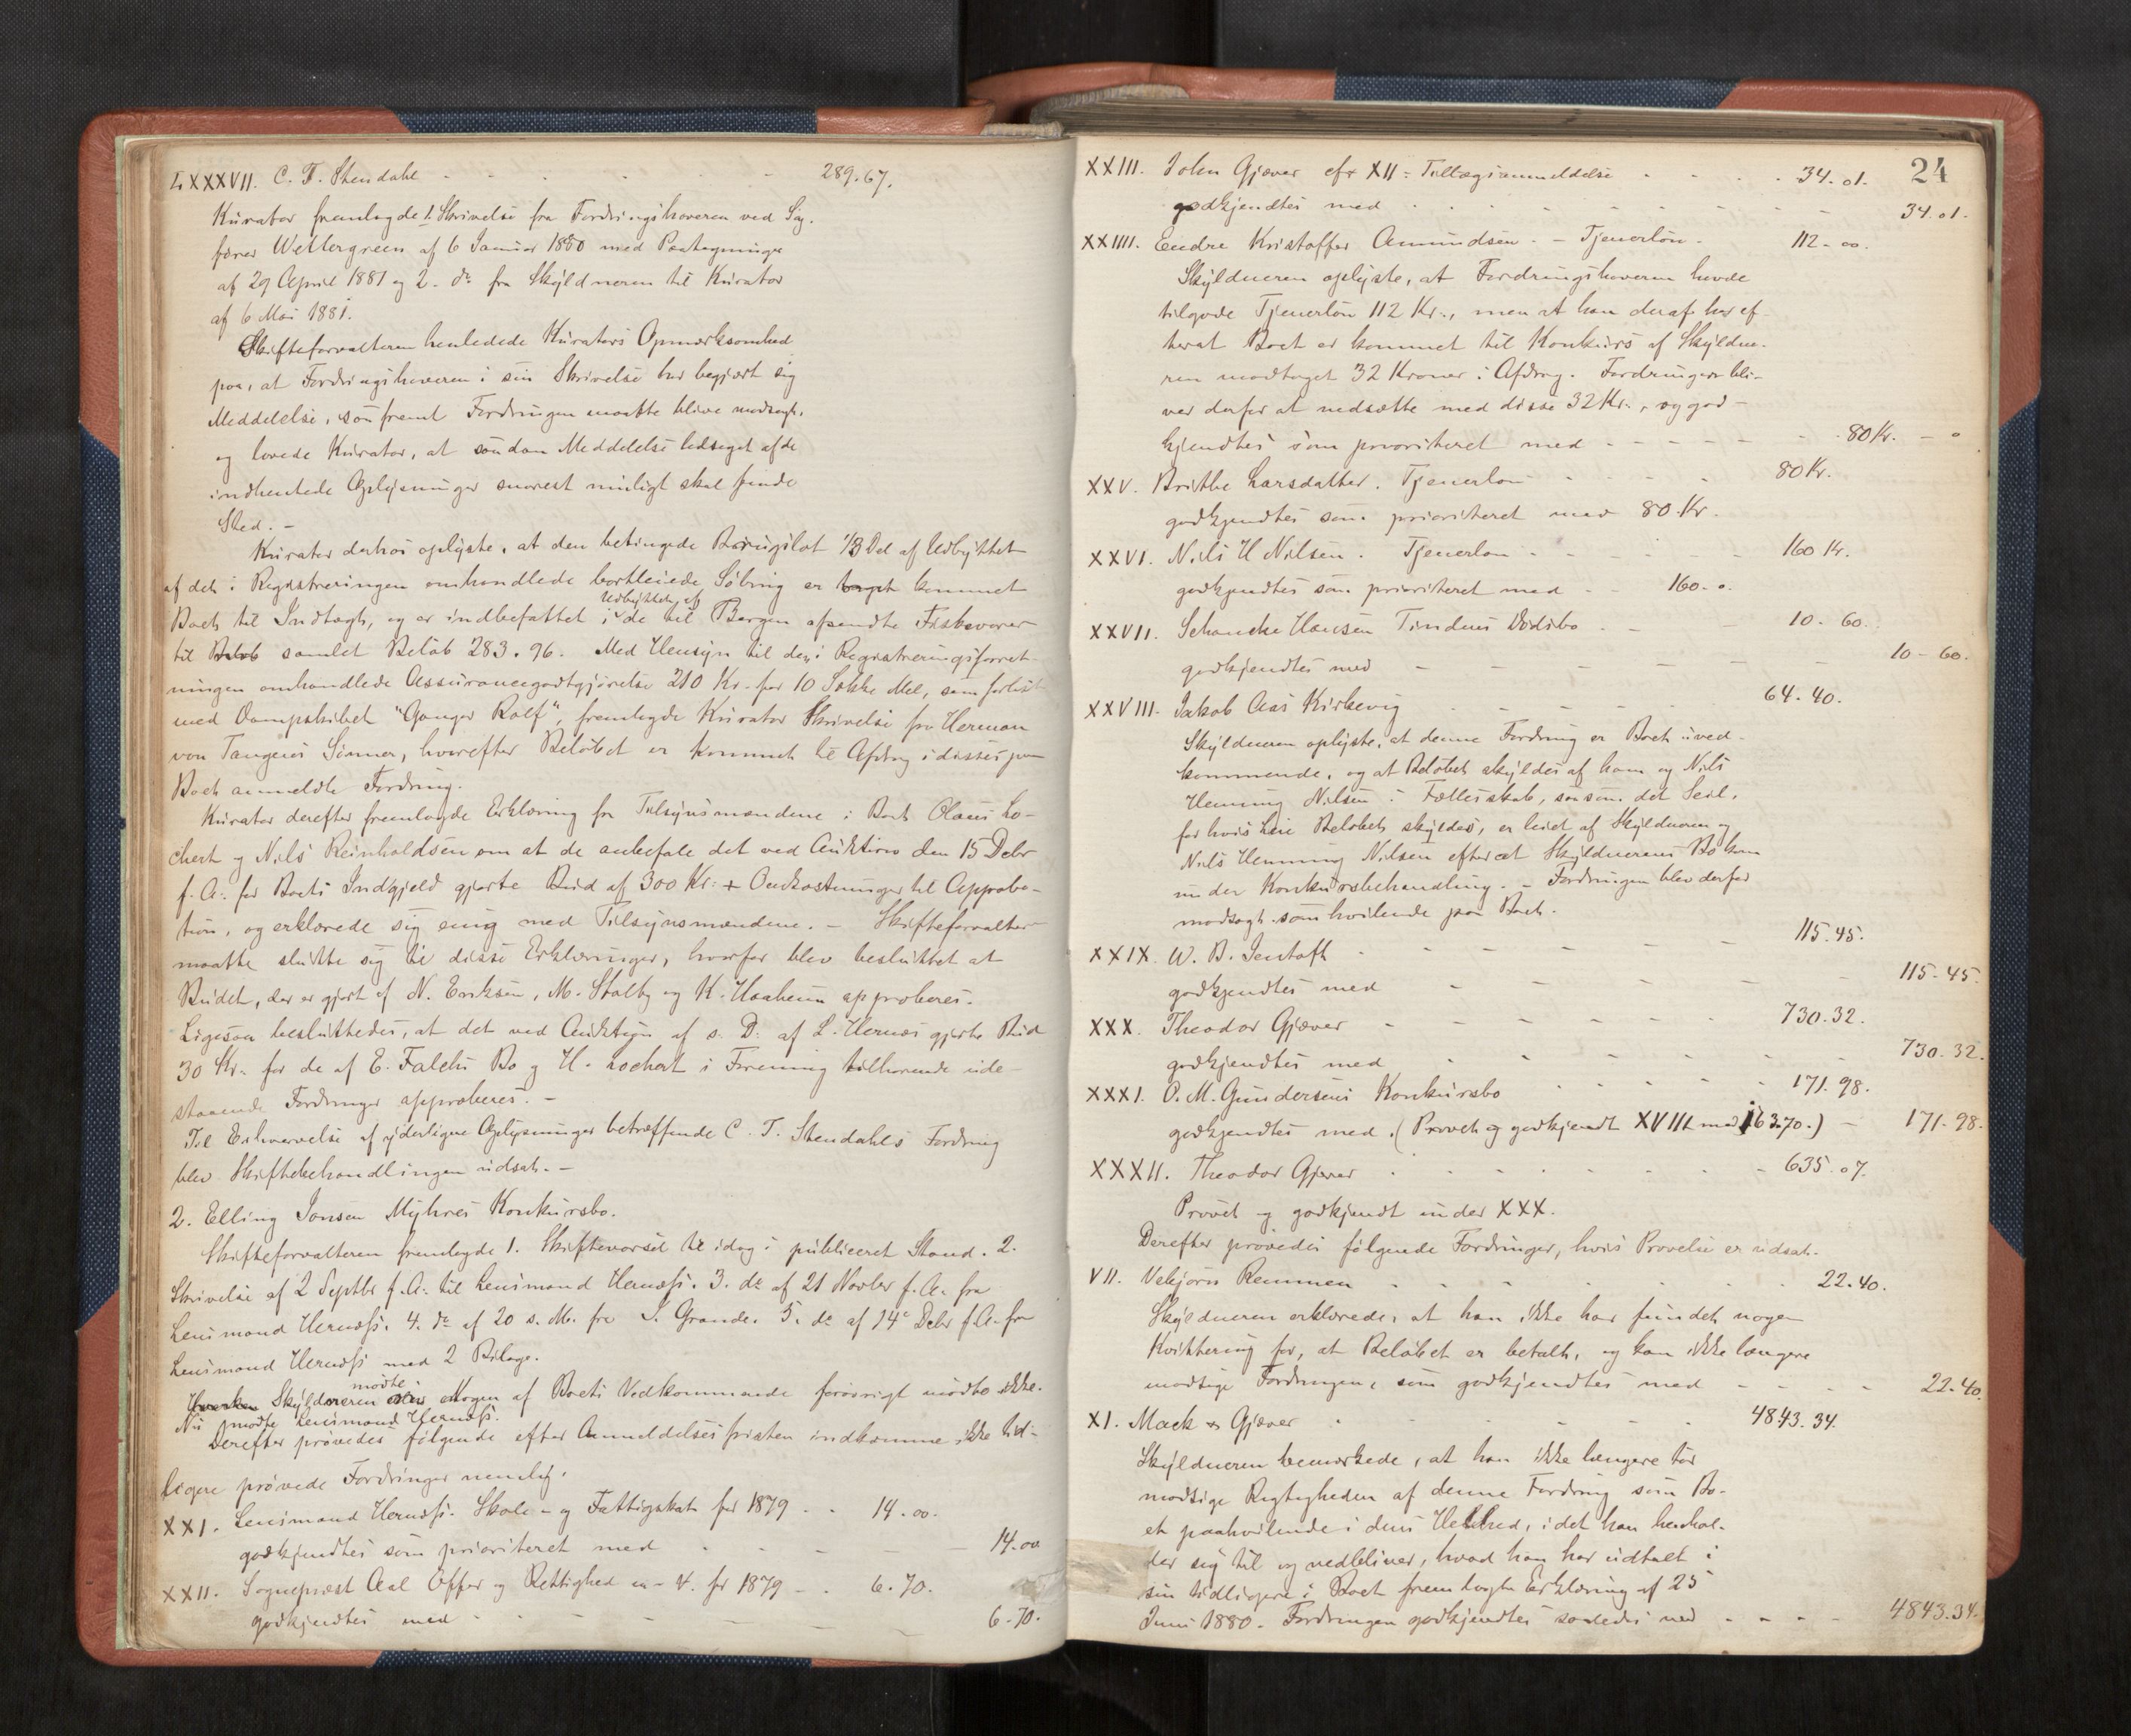 LXXXVII. C. T. Stendahl - - - - - - 289.67.
Kurator fremlagde 1. Skrivelse fra Fordringshaveren ved Sag-
fører Wettergreen af 6 Januar 1880 med Paategninger
af 29 April 1881 og 2. do fra Skyldneren til Kurator
af 6 Mai 1881.
Skifteforvalteren henledede Kurators Opmærksomhed
paa, at Fordringshaveren i sin Skrivelse har begjært sig
Meddelelse, saafremt Fordringen maatte blive modsagt,
og lovede Kurator, at saadan Meddelelse ledsaget af de
indhentede Oplysninger snarest muligt skal finde
Sted. -
Kurator derhos oplyste, at den betingede 1/3 Del af Udbyttet
af det i Registreringen omhandlede bortleiede Søbrug er kommet
Boet til Indtægt, og er indbefattet i Udbyttet af de til Bergen afsendte Fiskevarer
til Beløb samlet Beløb 283.96. Med Hensyn til den i Registreringsforret-
ningen omhandlede Assurancegodtgjørelse 210 Kr. for 10 Sække Mel, som forliste
med Dampskibet "Ganger Rolf", fremlagde Kurator Skrivelse fra Herman
von Tangens Sønner, hvorefter Beløbet er kommet til Afdrag i disses paa
Boet anmeldte Fordring.
Kurator derefter fremlagde Erklæring fra Tilsynsmændene i Boet Olaus Lo-
chert og Nils Reinholdsen om at de anbefale det ved Auktion den 15 Debr
f. A. for Boets Indgjeld gjorte Bud af 300 Kr. + Omkostninger til Approba-
tion, og erklærede sig enig med Tilsynsmændene. - Skifteforvalter
maatte slutte sig til disse Erklæringer, hvorfor blev besluttet at
Budet, der er gjort af N. Eriksen, M. Stalby og K. Haaheim approberes.
Ligesaa besluttedes, at det ved Auktion af s. D. af L. Hernæs gjorte Bud
30 Kr. for de af E. Falchs Bo og H. Lochert i Forening tilhørende ude-
staaende Fordringer approberes. -
Til Erhvervelse af yderligere Oplysninger betræffende C. T. Stendahls Fordring
blev Skiftebehandlingen udsat. -
2. Elling Jonsen Myhres Konkursbo.
Skifteforvalteren fremlagde 1. Skiftevarsel til idag i publiceret Stand. 2.
Skrivelse af 2 Septbr f. A. til Lensmand Hernæss. 3. do af 21 Novbr f. A. fra
Lensmand Hernæss. 4. do af 20 s. M. fra J. Grande. 5. do af 14 Debr f. A. fra
Lensmand Hernæss med 2 Bilage.
Hverken Skyldneren mødte eller Nogen af Boets Vedkommende forøvrigt mødte ikke.
Nu mødte Lensmand Hernæss.
Derefter prøvedes følgende efter Anmeldelsesfristen indkomne ikke tid-
ligere prøvede Fordringer nemlig.
XXI. Lensmand Hernæss. Skole- og Fattigskat for 1879 - - 14.00.
godkjendtes som prioriteret med - - - - 14.00
XXII. Sogneprest Aal Offer og Rettighed m. V. for 1879 - - 6.70.
godkjendtes med - - - - - 6.70.
24
XXIII. John Gjæver cfr XII = Tillægsanmeldelse - - - - 34.01.
godkjendtes med - - - - - 34.01.
XXIIII. Endre Kristoffer Amundsen. - Tjenerløn - 112-00.
Skyldneren oplyste, at Fordringshaveren havde
tilgode Tjenerløn 112 Kr., men at han deraf har ef-
terat Boet er kommet til Konkurs af Skyldne-
ren modtaget 32 Kroner i Afdrag. Fordringen bli-
ver derfor at nedsætte med disse 32 Kr., og god-
kjendtes som prioriteret med - - - - - 80 Kr. - 0
XXV. Brithe Larsdatter. Tjenerløn - - - - 80 Kr.
godkjendtes som prioriteret med 80 Kr.
XXVI. Nils H Nilsen. Tjenerløn - - - - 160 Kr.
godkjendtes som prioriteret med - - 160.0.
XXVII. Schancke Hansen Tindens Dødsbo - - - 10-60.
godkjendtes med - - - - - 10-60.
XXVIII. Jakob Aas Kirkevig - - - - - 64.40.
Skyldneren oplyste, at denne Fordring er Boet uved-
kommende, og at Beløbet skyldes af ham og Nils
Henning Nilsen i Fællesskab, saasom det Seil,
for hvis Leie Beløbet skyldes, er leiet af Skyldneren og
Nils Henning Nilsen efterat Skyldnerens Bo kom
under Konkursbehandling. - Fordringen blev derfor
modsagt som hvilende paa Boet.
XXIX. W. B. Jentoft - - - - - 115.45.
godkjendtes med - - - - - 115-45.
XXX. Theodor Gjæver - - - - - 730.32.
godkjendtes med - - - - - 730.32.
XXXI. O. M. Gundersens Konkursbo - - - - 171.98.
godkjendtes med. (Prøvet og godkjendt XVIII med 163.70.) - 171-98.
XXXII. Theodor Gjæver - - - - - 635.07.
Prøvet og godkjendt under XXX.
Derefter prøvedes følgende Fordringer, hvis Prøvelse er udsat.
VII. Vebjørn Remmen - - - - - 22.40.
Skyldneren erklærede, at han ikke har fundet nogen
Kvittering for, at Beløbet er betalt, og kan ikke længere
modsige Fordringen, som godkjendtes med - - - - 22.40.
XI. Mack & Gjæver - - - - - 4843.34.
Skyldneren bemærkede, at han ikke længere tør
modsige Rigtigheden af denne Fordring som Bo-
et paahvilende i dens Helhed, idet han henhol-
der sig til og vedbliver, hvad han har udtalt i
sin tidligere i Boet fremlagte Erklæring af 25
Juni 1880. Fordringen godkjendtes saaledes med - - - - 4843.34.